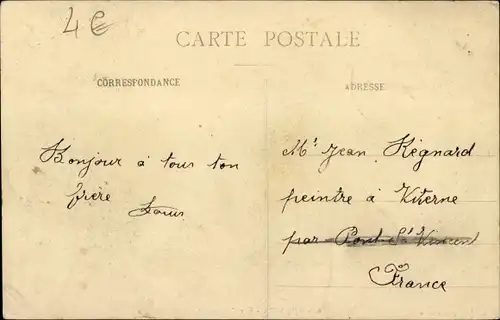 4€
CARTE POSTALE
CORRESPONDANCE
ADRESSE
Bonjour à tous ton
frère
Mr Jean Régnard
peintre à Viterne
par Pont-St Vincent
France